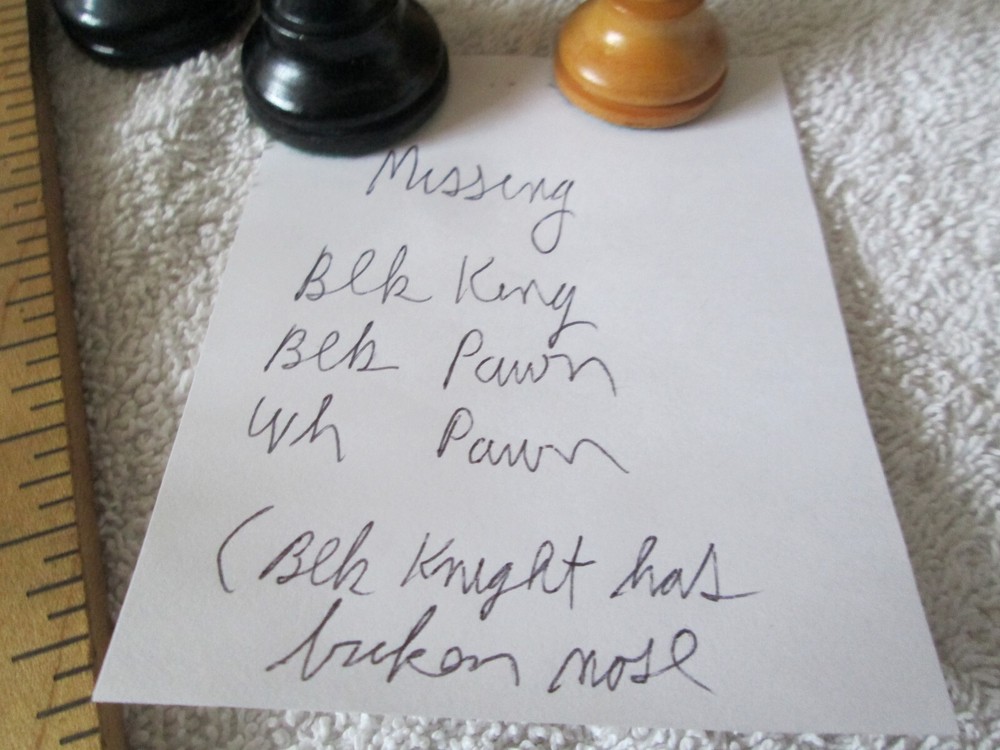 Missing
Blk King
Blk Pawn
Wh Pawn
(Blk Knight has
broken nose